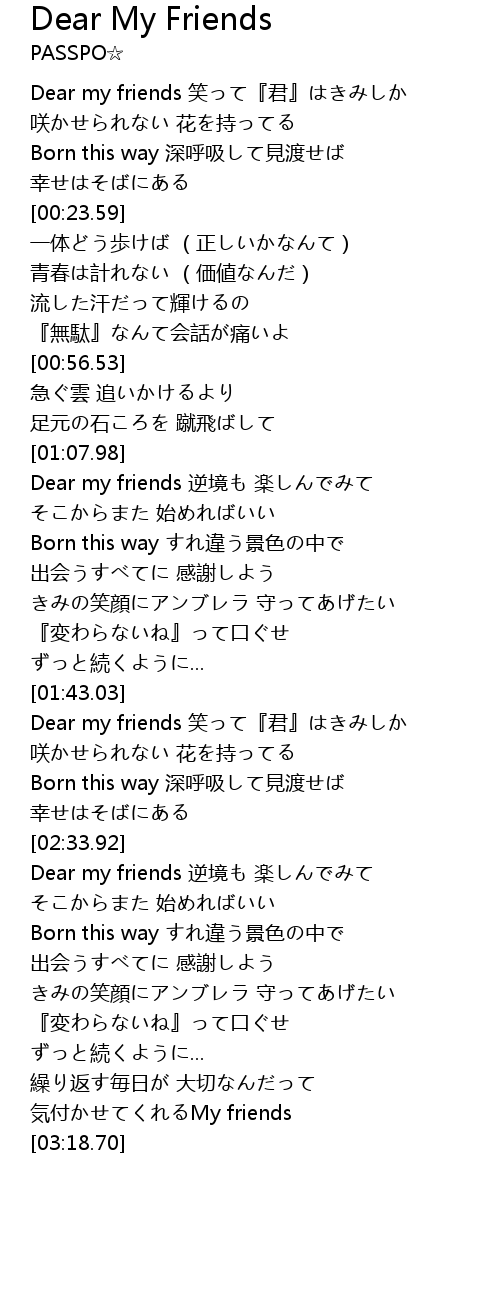 Dear My Friends
PASSPO☆
Dear my friends 笑って『君』はきみしか
咲かせられない 花を持ってる
Born this way 深呼吸して見渡せば
幸せはそばにある
[00:23.59]
一体どう歩けば （正しいかなんて）
青春は計れない （価値なんだ）
流した汗だって輝けるの
『無駄』なんて会話が痛いよ
[00:56.53]
急ぐ雲 追いかけるより
足元の石ころを 蹴飛ばして
[01:07.98]
Dear my friends 逆境も 楽しんでみて
そこからまた 始めればいい
Born this way すれ違う景色の中で
出会うすべてに 感謝しよう
きみの笑顔にアンブレラ 守ってあげたい
『変わらないね』って口ぐせ
ずっと続くように...
[01:43.03]
Dear my friends 笑って『君』はきみしか
咲かせられない 花を持ってる
Born this way 深呼吸して見渡せば
幸せはそばにある
[02:33.92]
Dear my friends 逆境も 楽しんでみて
そこからまた 始めればいい
Born this way すれ違う景色の中で
出会うすべてに 感謝しよう
きみの笑顔にアンブレラ 守ってあげたい
『変わらないね』って口ぐせ
ずっと続くように...
繰り返す毎日が 大切なんだって
気付かせてくれるMy friends
[03:18.70]